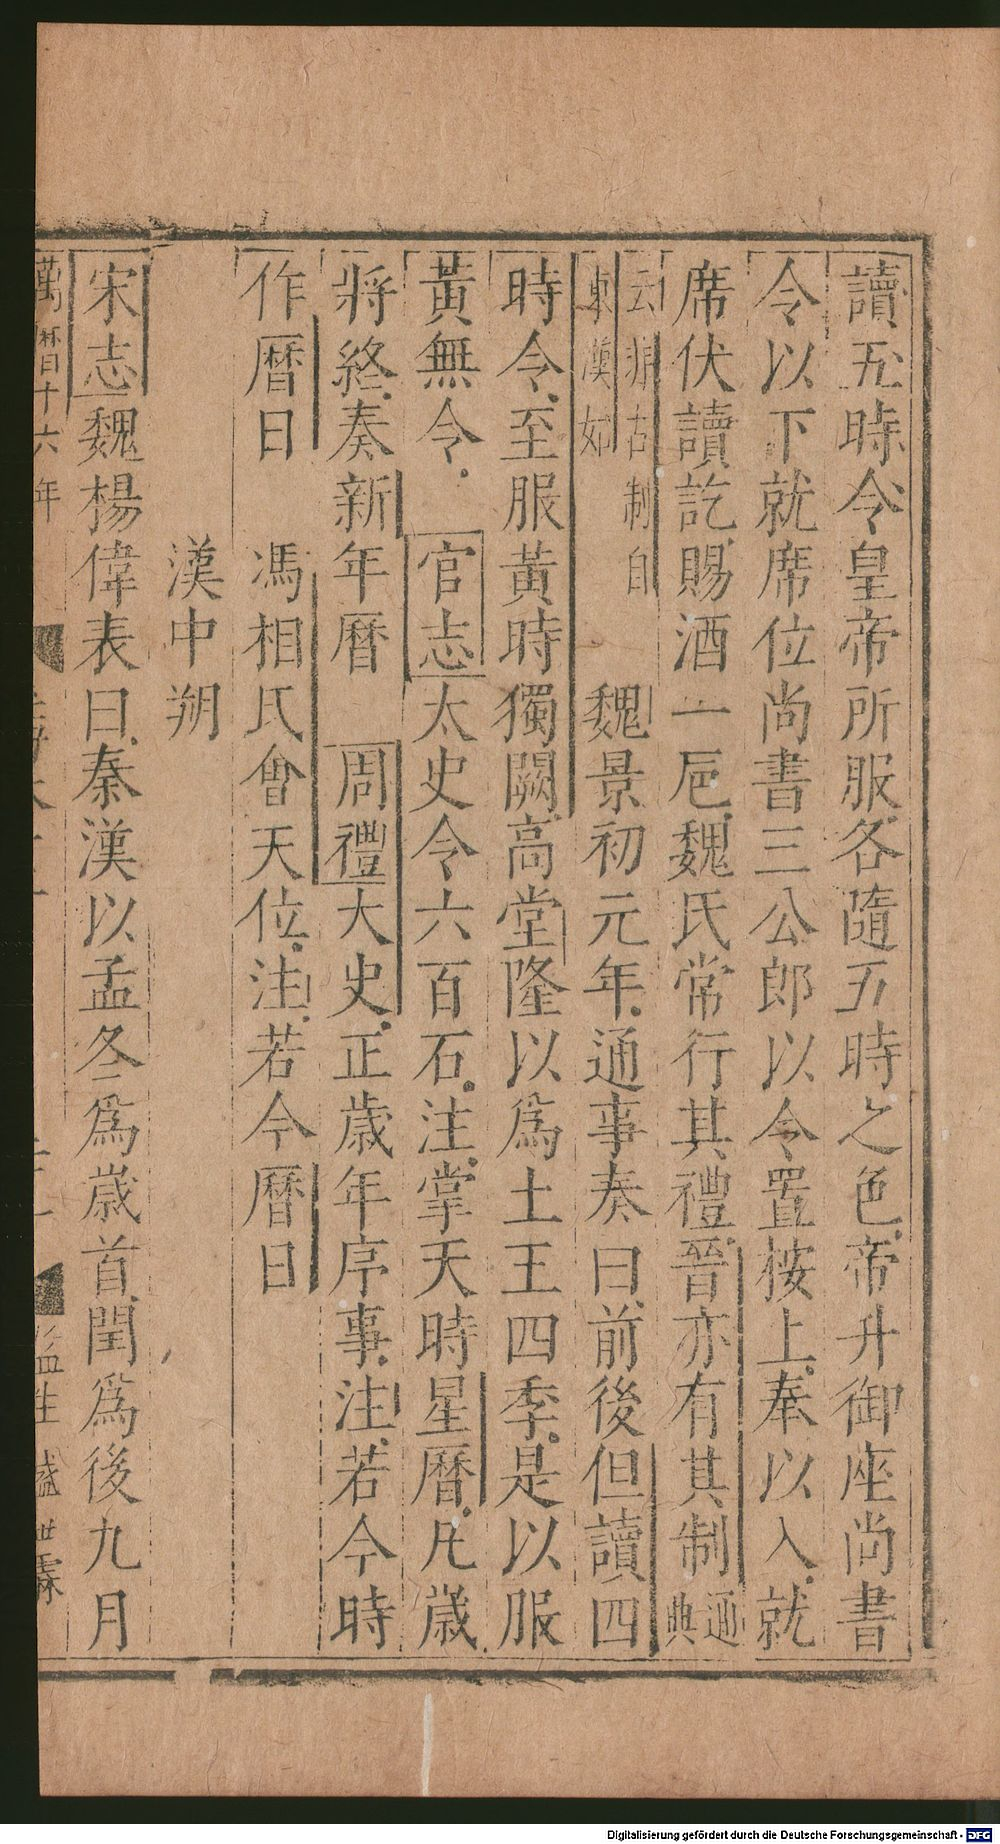 讀五時令皇帝所服各隨五時之色帝升御座尚書
令以下就席位尚書三公郎以令置桉上奉以入就
席伏讀訖賜酒一巵魏氏常行其禮晉亦有其制通典
云非古制自
東漢始
魏景初元年通事奏曰前後但讀四
時令至服黃時獨闕高堂隆以為土王四季是以服
黃無令 官志太史令六百石注掌天時星曆凡歲
將終奏新年曆 周禮大史正歲年序事注若今時
作曆日 馮相氏會天位注若今曆日
漢中朔
宋志魏楊偉表曰秦漢以孟冬為歲首閏為後九月
萬曆十六年
監生
Digitalisierung gefördert durch die Deutsche Forschungsgemeinschaft - DFG